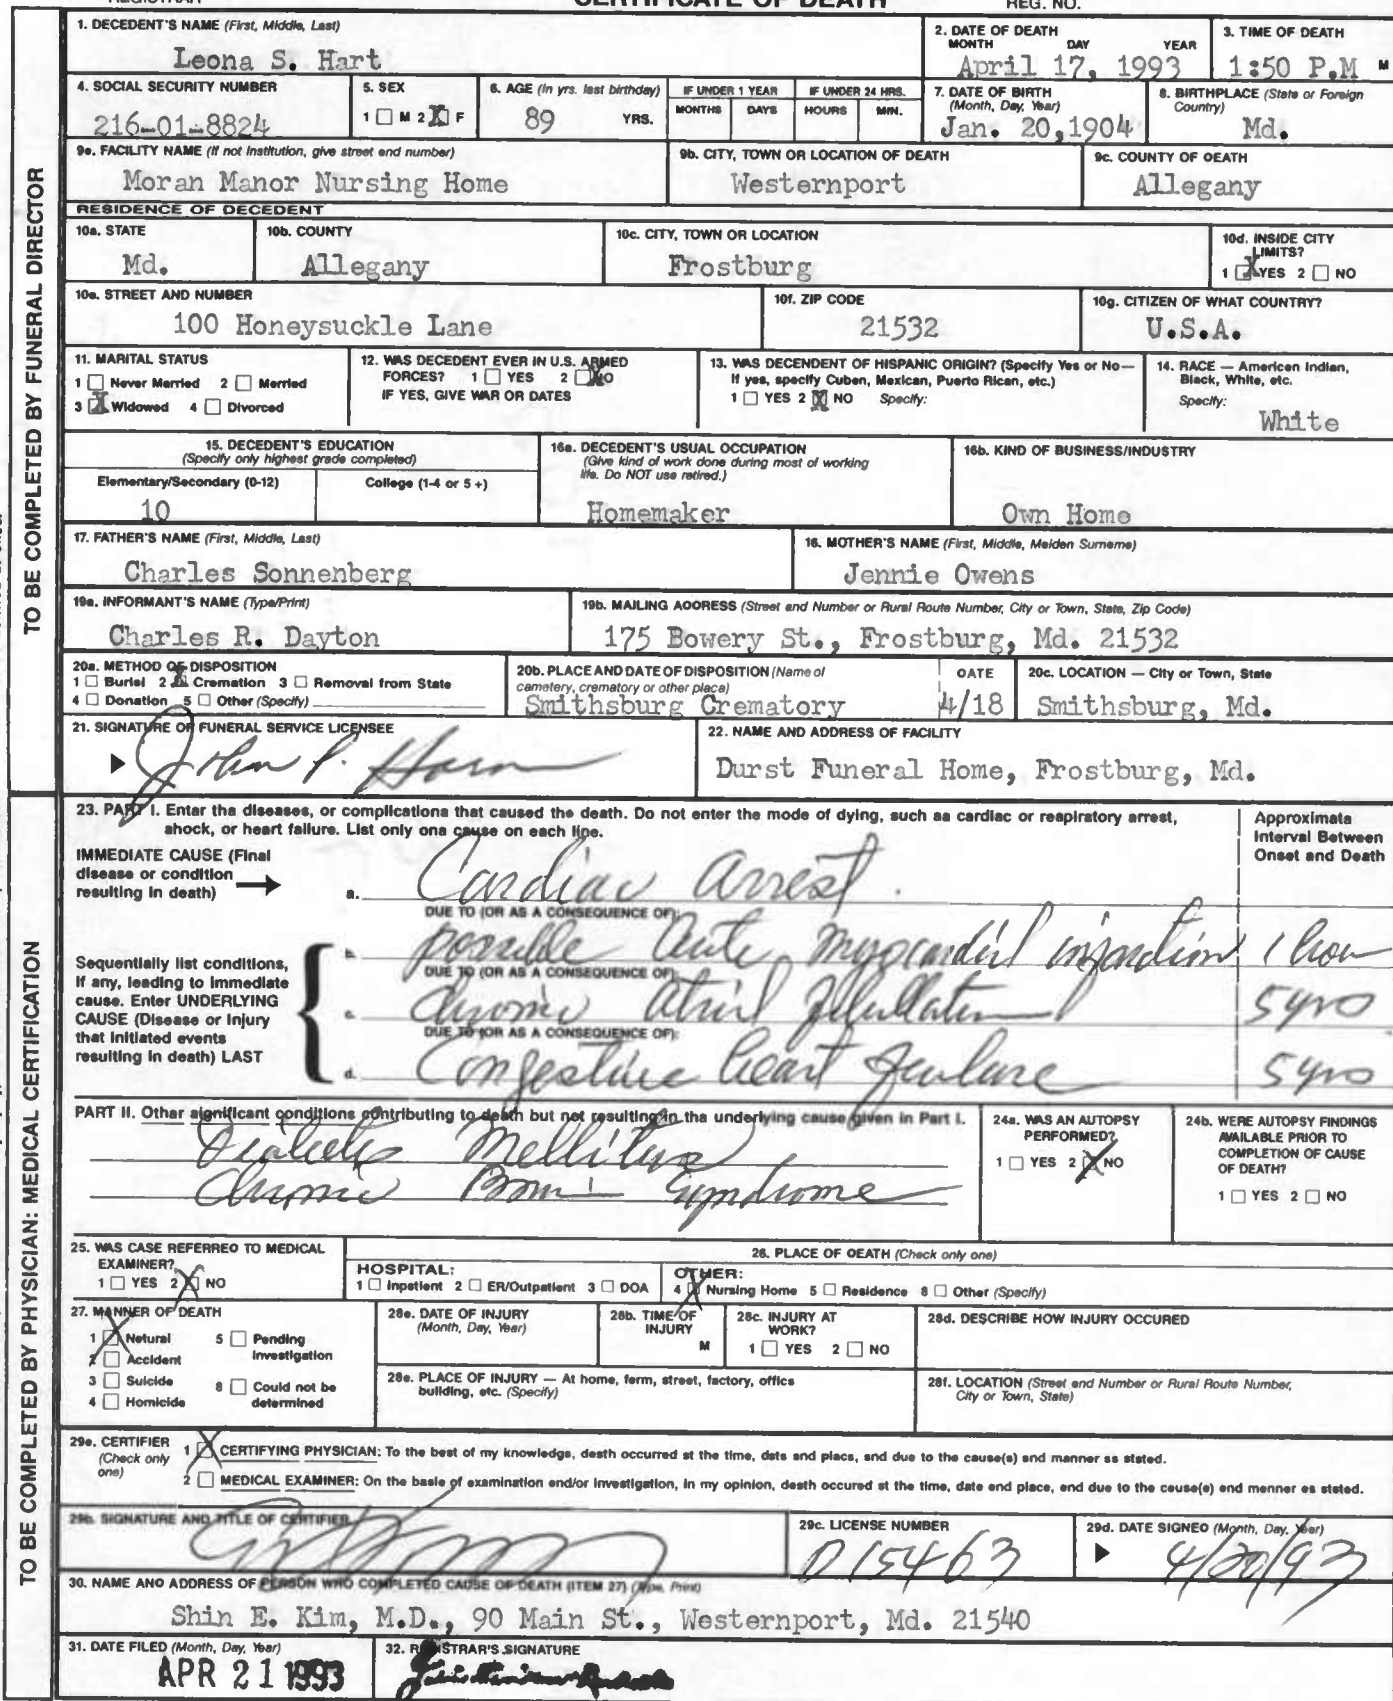 CERTIFICATE OF DEATH
REGISTRAR
REG. NO.
TO BE COMPLETED BY FUNERAL DIRECTOR
1. DECEDENT'S NAME (First, Middle, Last)
Leona S. Hart
2. DATE OF DEATH
MONTH DAY YEAR
April 17, 1993
3. TIME OF DEATH
1:50 P.M M
4. SOCIAL SECURITY NUMBER
216-01-8824
5. SEX
1 ☐ M 2 ☒ F
6. AGE (In yrs. last birthday)
89 YRS.
IF UNDER 1 YEAR
MONTHS DAYS
IF UNDER 24 HRS.
HOURS MIN.
7. DATE OF BIRTH
(Month, Day, Year)
Jan. 20,1904
8. BIRTHPLACE (State or Foreign
Country)
Md.
9a. FACILITY NAME (If not institution, give street and number)
Moran Manor Nursing Home
9b. CITY, TOWN OR LOCATION OF DEATH
Westernport
9c. COUNTY OF DEATH
Allegany
RESIDENCE OF DECEDENT
10a. STATE
Md.
10b. COUNTY
Allegany
10c. CITY, TOWN OR LOCATION
Frostburg
10d. INSIDE CITY
LIMITS?
1 ☒ YES 2 ☐ NO
10e. STREET AND NUMBER
100 Honeysuckle Lane
10f. ZIP CODE
21532
10g. CITIZEN OF WHAT COUNTRY?
U.S.A.
11. MARITAL STATUS
1 ☐ Never Married 2 ☐ Married
3 ☒ Widowed 4 ☐ Divorced
12. WAS DECEDENT EVER IN U.S. ARMED
FORCES? 1 ☐ YES 2 ☒ NO
IF YES, GIVE WAR OR DATES
13. WAS DECENDENT OF HISPANIC ORIGIN? (Specify Yes or No—
If yes, specify Cuben, Mexican, Puerto Rican, etc.)
1 ☐ YES 2 ☒ NO Specify:
14. RACE — American Indian,
Black, White, etc.
Specify:
White
15. DECEDENT'S EDUCATION
(Specify only highest grade completed)
Elementary/Secondary (0-12) College (1-4 or 5+)
10
16a. DECEDENT'S USUAL OCCUPATION
(Give kind of work done during most of working
life. Do NOT use retired.)
Homemaker
16b. KIND OF BUSINESS/INDUSTRY
Own Home
17. FATHER'S NAME (First, Middle, Last)
Charles Sonnenberg
18. MOTHER'S NAME (First, Middle, Meiden Surneme)
Jennie Owens
19a. INFORMANT'S NAME (Type/Print)
Charles R. Dayton
19b. MAILING ADDRESS (Street and Number or Rural Route Number, City or Town, State, Zip Code)
175 Bowery St., Frostburg, Md. 21532
20a. METHOD OF DISPOSITION
1 ☐ Buriel 2 ☒ Cremation 3 ☐ Removal from State
4 ☐ Donation 5 ☐ Other (Specify)
20b. PLACE AND DATE OF DISPOSITION (Name of
cametery, crematory or other place)
Smithsburg Crematory
DATE
4/18
20c. LOCATION — City or Town, State
Smithsburg, Md.
21. SIGNATURE OF FUNERAL SERVICE LICENSEE
John P.
22. NAME AND ADDRESS OF FACILITY
Durst Funeral Home, Frostburg, Md.
TO BE COMPLETED BY PHYSICIAN: MEDICAL CERTIFICATION
23. PART I. Enter tha diseases, or complicationa that caused the death. Do not enter the mode of dying, such aa cardiac or reapiratory arrest,
ahock, or heart failure. List only ona cause on each line.
Approximata
Interval Between
Onset and Death
IMMEDIATE CAUSE (Final
disease or condition
resulting in death)
a. Cardiac arrest.
DUE TO (OR AS A CONSEQUENCE OF):
Sequentially list conditions,
if any, leading to immediate
cause. Enter UNDERLYING
CAUSE (Disease or injury
that initiated events
resulting in death) LAST
b. possible acute myocardial infarction 1 hour
DUE TO (OR AS A CONSEQUENCE OF):
c. Chronic atrial fibrillation 5 yrs
DUE TO (OR AS A CONSEQUENCE OF):
d. Congestive heart failure 5 yrs
PART II. Other aignificant conditions contributing to death but not resulting in tha underlying cause given in Part I.
Diabetes Mellitus
Chronic Brain Syndrome
24a. WAS AN AUTOPSY
PERFORMED?
1 ☐ YES 2 ☒ NO
24b. WERE AUTOPSY FINDINGS
AVAILABLE PRIOR TO
COMPLETION OF CAUSE
OF DEATH?
1 ☐ YES 2 ☐ NO
25. WAS CASE REFERRED TO MEDICAL
EXAMINER?
1 ☐ YES 2 ☒ NO
26. PLACE OF DEATH (Check only one)
HOSPITAL:
1 ☐ Inpatient 2 ☐ ER/Outpatient 3 ☐ DOA
OTHER:
4 ☒ Nursing Home 5 ☐ Residence 8 ☐ Other (Specify)
27. MANNER OF DEATH
1 ☒ Netural 5 ☐ Pending
investigation
2 ☐ Accident
3 ☐ Suicide 8 ☐ Could not be
determined
4 ☐ Homicide
28a. DATE OF INJURY
(Month, Day, Year)
28b. TIME OF
INJURY
M
28c. INJURY AT
WORK?
1 ☐ YES 2 ☐ NO
28d. DESCRIBE HOW INJURY OCCURED
28e. PLACE OF INJURY — At home, ferm, street, factory, office
building, etc. (Specify)
28f. LOCATION (Street end Number or Rural Route Number,
City or Town, State)
29a. CERTIFIER
(Check only
one)
1 ☒ CERTIFYING PHYSICIAN: To the best of my knowledge, death occurred at the time, data and placs, and due to the cause(s) and manner as stated.
2 ☐ MEDICAL EXAMINER: On the basis of examination end/or investigation, in my opinion, death occured at the time, date end place, end due to the ceuse(e) end menner es stated.
29b. SIGNATURE AND TITLE OF CERTIFIER
29c. LICENSE NUMBER
D15463
29d. DATE SIGNED (Month, Day, Year)
4/20/93
30. NAME AND ADDRESS OF PERSON WHO COMPLETED CAUSE OF DEATH (ITEM 27) (Type, Print)
Shin E. Kim, M.D., 90 Main St., Westernport, Md. 21540
31. DATE FILED (Month, Day, Year)
APR 21 1993
32. REGISTRAR'S SIGNATURE